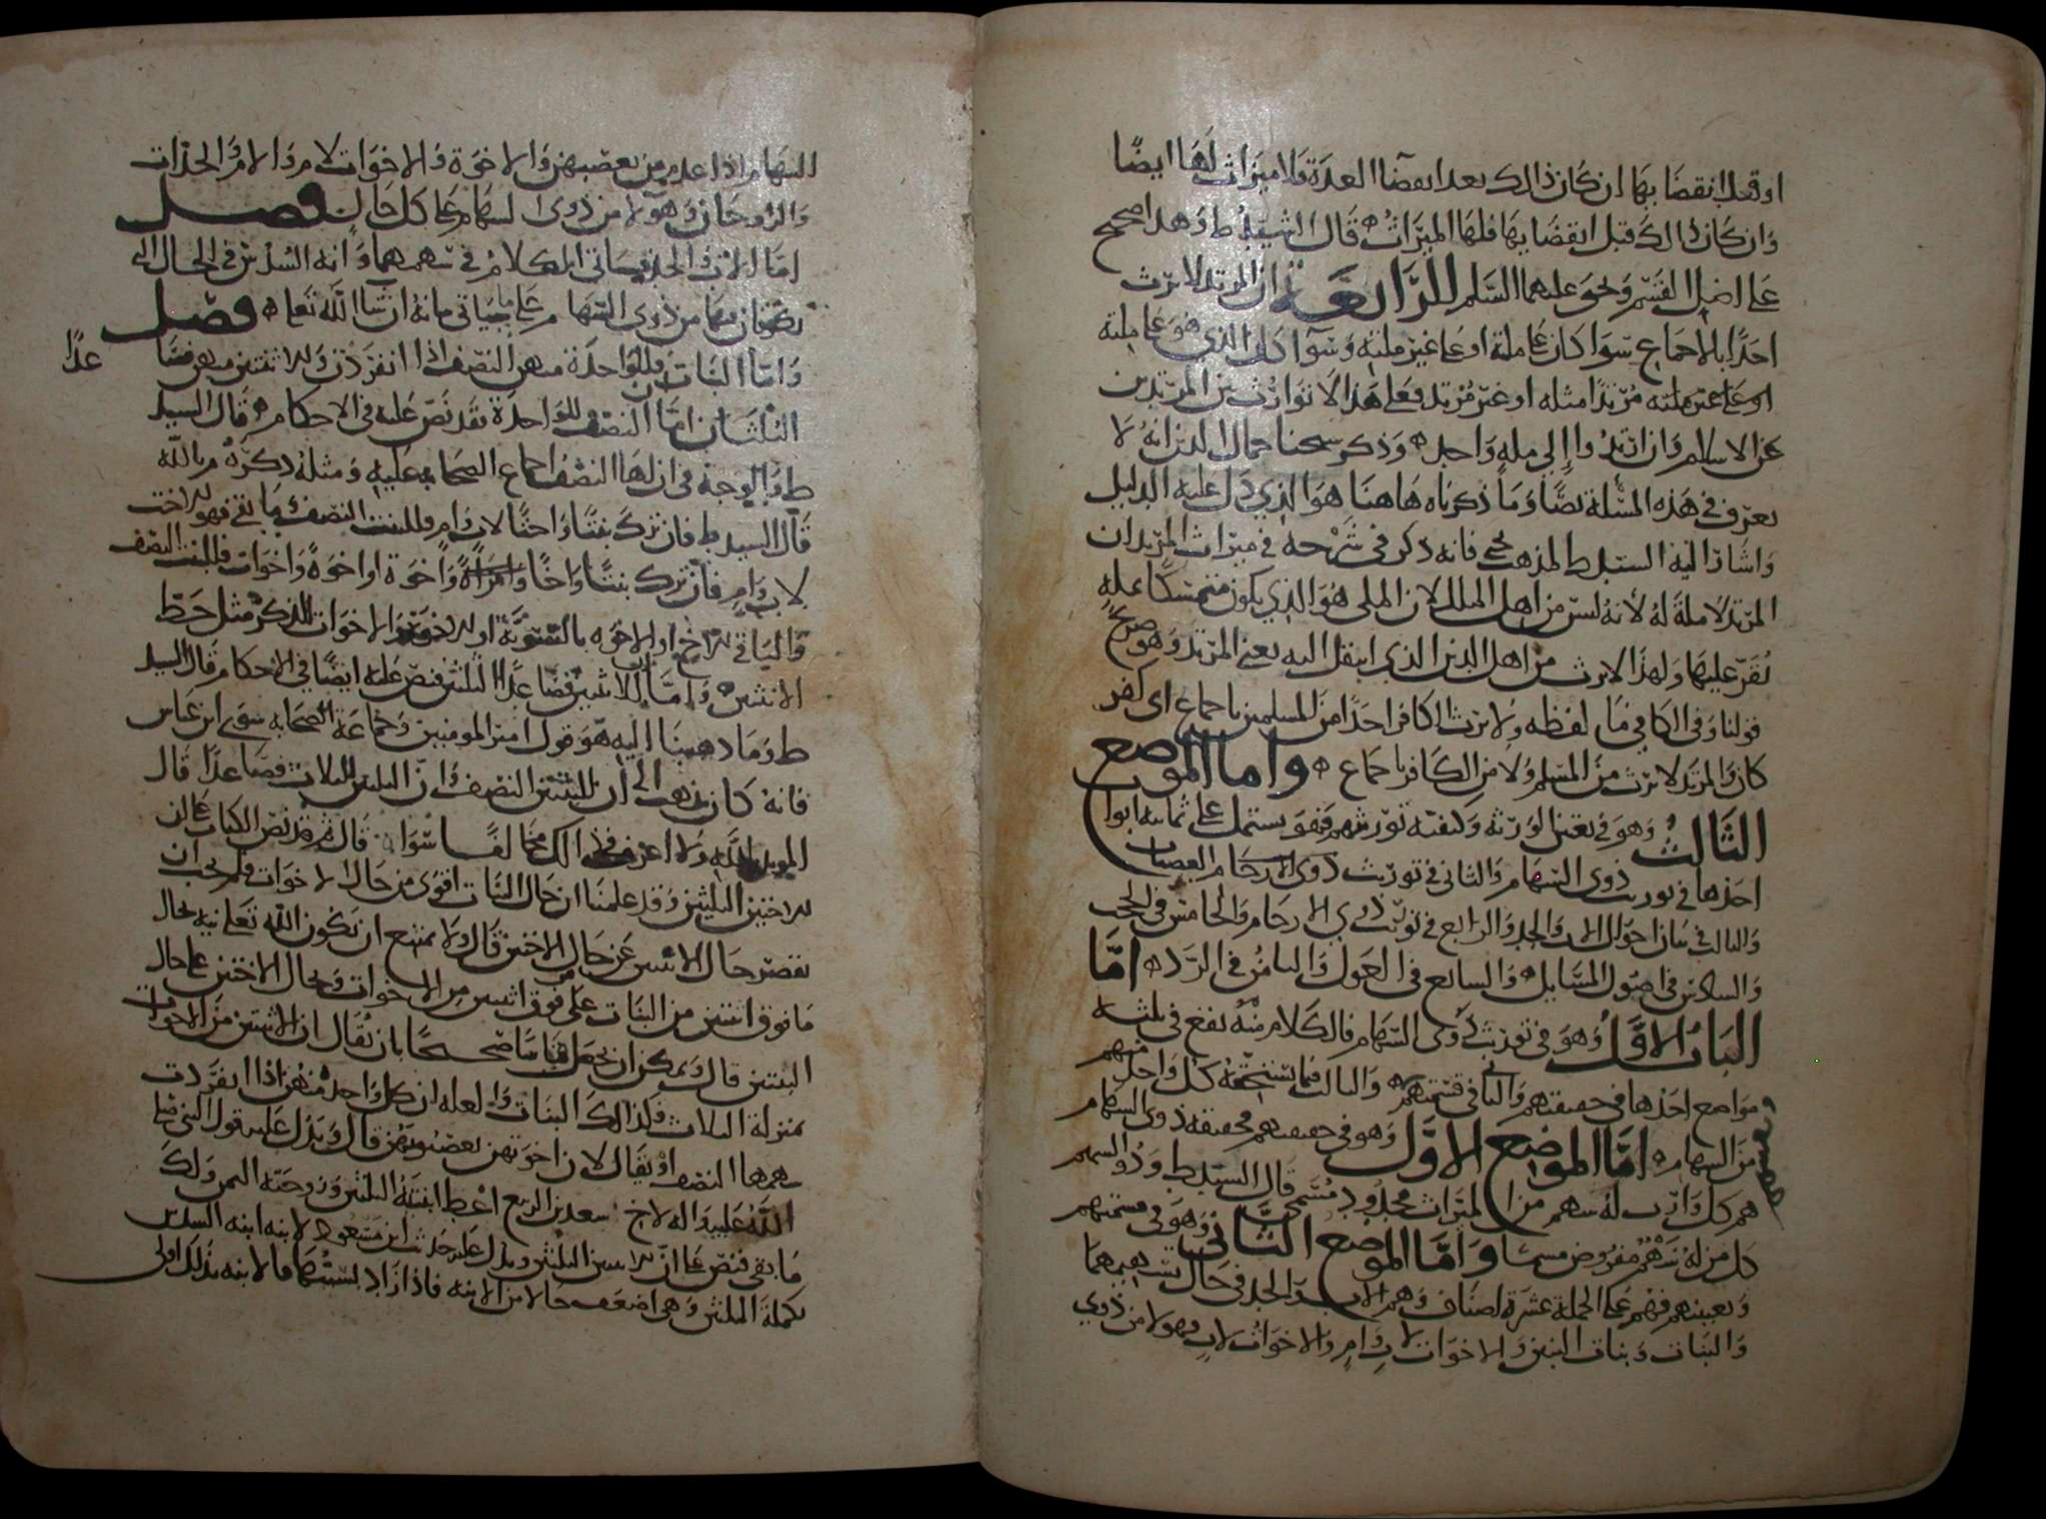 او قبل انقضايها ان كان ذالك بعد انقضآ العدة فلا ميراث لها ايضًا
وان كان ذالك قبل انقضايها فلها الميراث قال السيد ط وهذا صحيح
على اصل القسم ويحيى عليهما السلم الرابعة ان المرتد لا يرث
احدًا بالاجماع سوا كان على ملته او على غير ملته وسوآ كان الذي هو على ملته
او على غير ملته مرتدًا مثله او غير مرتد فعلى هذا لا توارث بين المرتدين
عن الاسلام وان ارتدوا إلى ملةٍ واحدة وذكر شيخنا جمال الدين انه لا
يعرف في هذه المسئلة نصًّا وما ذكرناه هاهنا هو الذي دل عليه الدليل
واشار اليه السيد ط للمذهب فانه ذكر في شرحه في ميراث المرتد ان
المرتد لا ملة له لأنه ليس من اهل الملل لان الملي هو الذي يكون متمسكًا بملةٍ
يُقَرّ عليها ولهذا لا يرث من اهل الدين الذي انتقل اليه يعني المرتد وهو صريح
قولنا وفي الكافي ما لفظه ولا يرث الكافر احدًا من المسلمين باجماع اي كفر
كان والمرتد لا يرث من المسلم ولا من الكافر باجماع واما الموضع
الثالث وهو في تعيين الورثة وكيفية توريثهم فهو يشتمل على ثمانية ابواب
احدها في توريث ذوي السهام والثاني في توريث ذوي الارحام العصبات
والثالث في بيان احوال الاب والجد والرابع في توريث ذوي الارحام والخامس في الحجب
والسادس في اصول المسايل والسابع في العول والثامن في الرد اما
الباب الاوّل وهو في توريث ذوي السهام فالكلام منه يقع في ثلثة
مواضع احدها في حقيقتهم والثاني في قسمتهم والثالث فيما يستحقه كل واحد منهم
من السهام اما الموضع الاوّل وهو في حقيقتهم فحقيقة ذوي السهام
هم كل وارث له سهم من الميراث محدود مسمى قال السيد ط وذو السهم
كل من له سهم مفروض مسما واما الموضع الثاني وهو في قسمتهم
وتعيينهم فهم على الجملة عشرة اصناف وهم الاب والجد في حال تسهيمهما
والبنات وبنات البنين والاخوات لاب وام والاخوات لاب فهولا من ذوي
السهام اذا عدم من يعصبهن والاخوة والاخوات لام والام والجدات
والزوجان وهولا من ذوي السهام على كل حال فصل
اما الاب والجد فسياتي الكلام في سهمهما وانه السدس في الحال التي
يكونان فيها من ذوي السهام على ما ياتي بيانه ان شا الله تعالى فصل
واما البنات فللواحدة منهن النصف اذا انفردت وللاثنتين منهن فصا
عدًا
الثلثان اما ان النصف للواحدة فقد نص عليه في الاحكام قال السيد
ط والوجه في ان لها النصف اجماع الصحابه عليه ومثله ذكره م بالله
قال السيد ط فان ترك بنتًا واختًا لاب وام فللبنت النصف وما بقي فهو للاخت
لاب وام فان ترك بنتًا واخًا واخوة او اخوةً واخوات فللبنت النصف
والباقي للاخ او للاخوه بالسّويّة او للاخوة والاخوات للذكر مثل حظ
الانثيين واما ان للاثنتين فصاعدًا الثلثين فنص عليه ايضًا في الاحكام قال السيد
ط وما ذهبنا اليه هو قول امير المومنين وجماعة الصحابه سوى ابن عباس
فانه كان يذهب الى ان للبنتين النصف وان الثلثين للثلاث فصاعدًا قال
المويد بالله ولا اعرف في ذالك مخالفًا سواه قال م قد نص الكتاب على ان
للاختين الثلثين وقد علمنا ان حال البنات اقوى من حال الاخوات فلم يجب ان
تقصر حال الابنتين عن حال الاختين قال ولا يمتنع ان يكون الله تعالى نبه بحال
ما فوق اثنتين من البنات على ما فوق اثنتين من الاخوات وبحال الاختين على حال
البنتين قال ويمكن ان يجعل قياسًا صحيحًا بان يقال ان الاثنتين من الاخوات
بمنزلة الثلاث فكذالك البنات والعله ان كل واحدة منهن اذا انفردت
سهمها النصف او يقال لان اخوتهن يعصبونهن قال ويدل عليه قول النبي صلى
الله عليه واله لاخ سعد بن الربيع اعط ابنتيه الثلثين وزوجته الثمن ولك
ما بقي فنص على ان للابنتين الثلثين ويدل عليه حديث ابن مسعود لابنه ابنه السدس
تكملة الثلثين وهي اضعف حالا من الابنه فاذا زاد بسببها فالابنه بذلك اولى